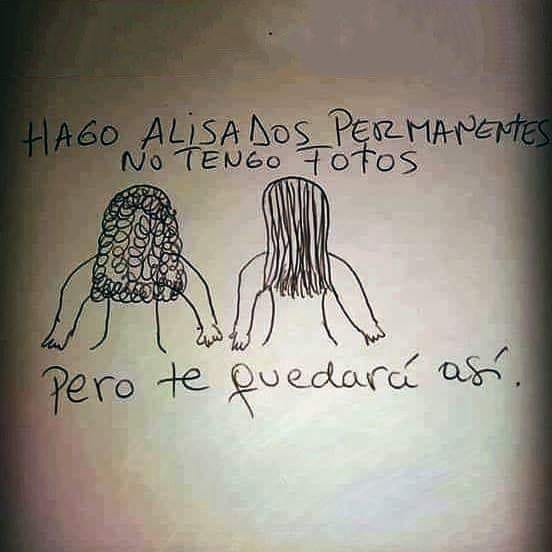 HAGO ALISADOS PERMANENTES
NO TENGO FOTOS
Pero te quedará así.